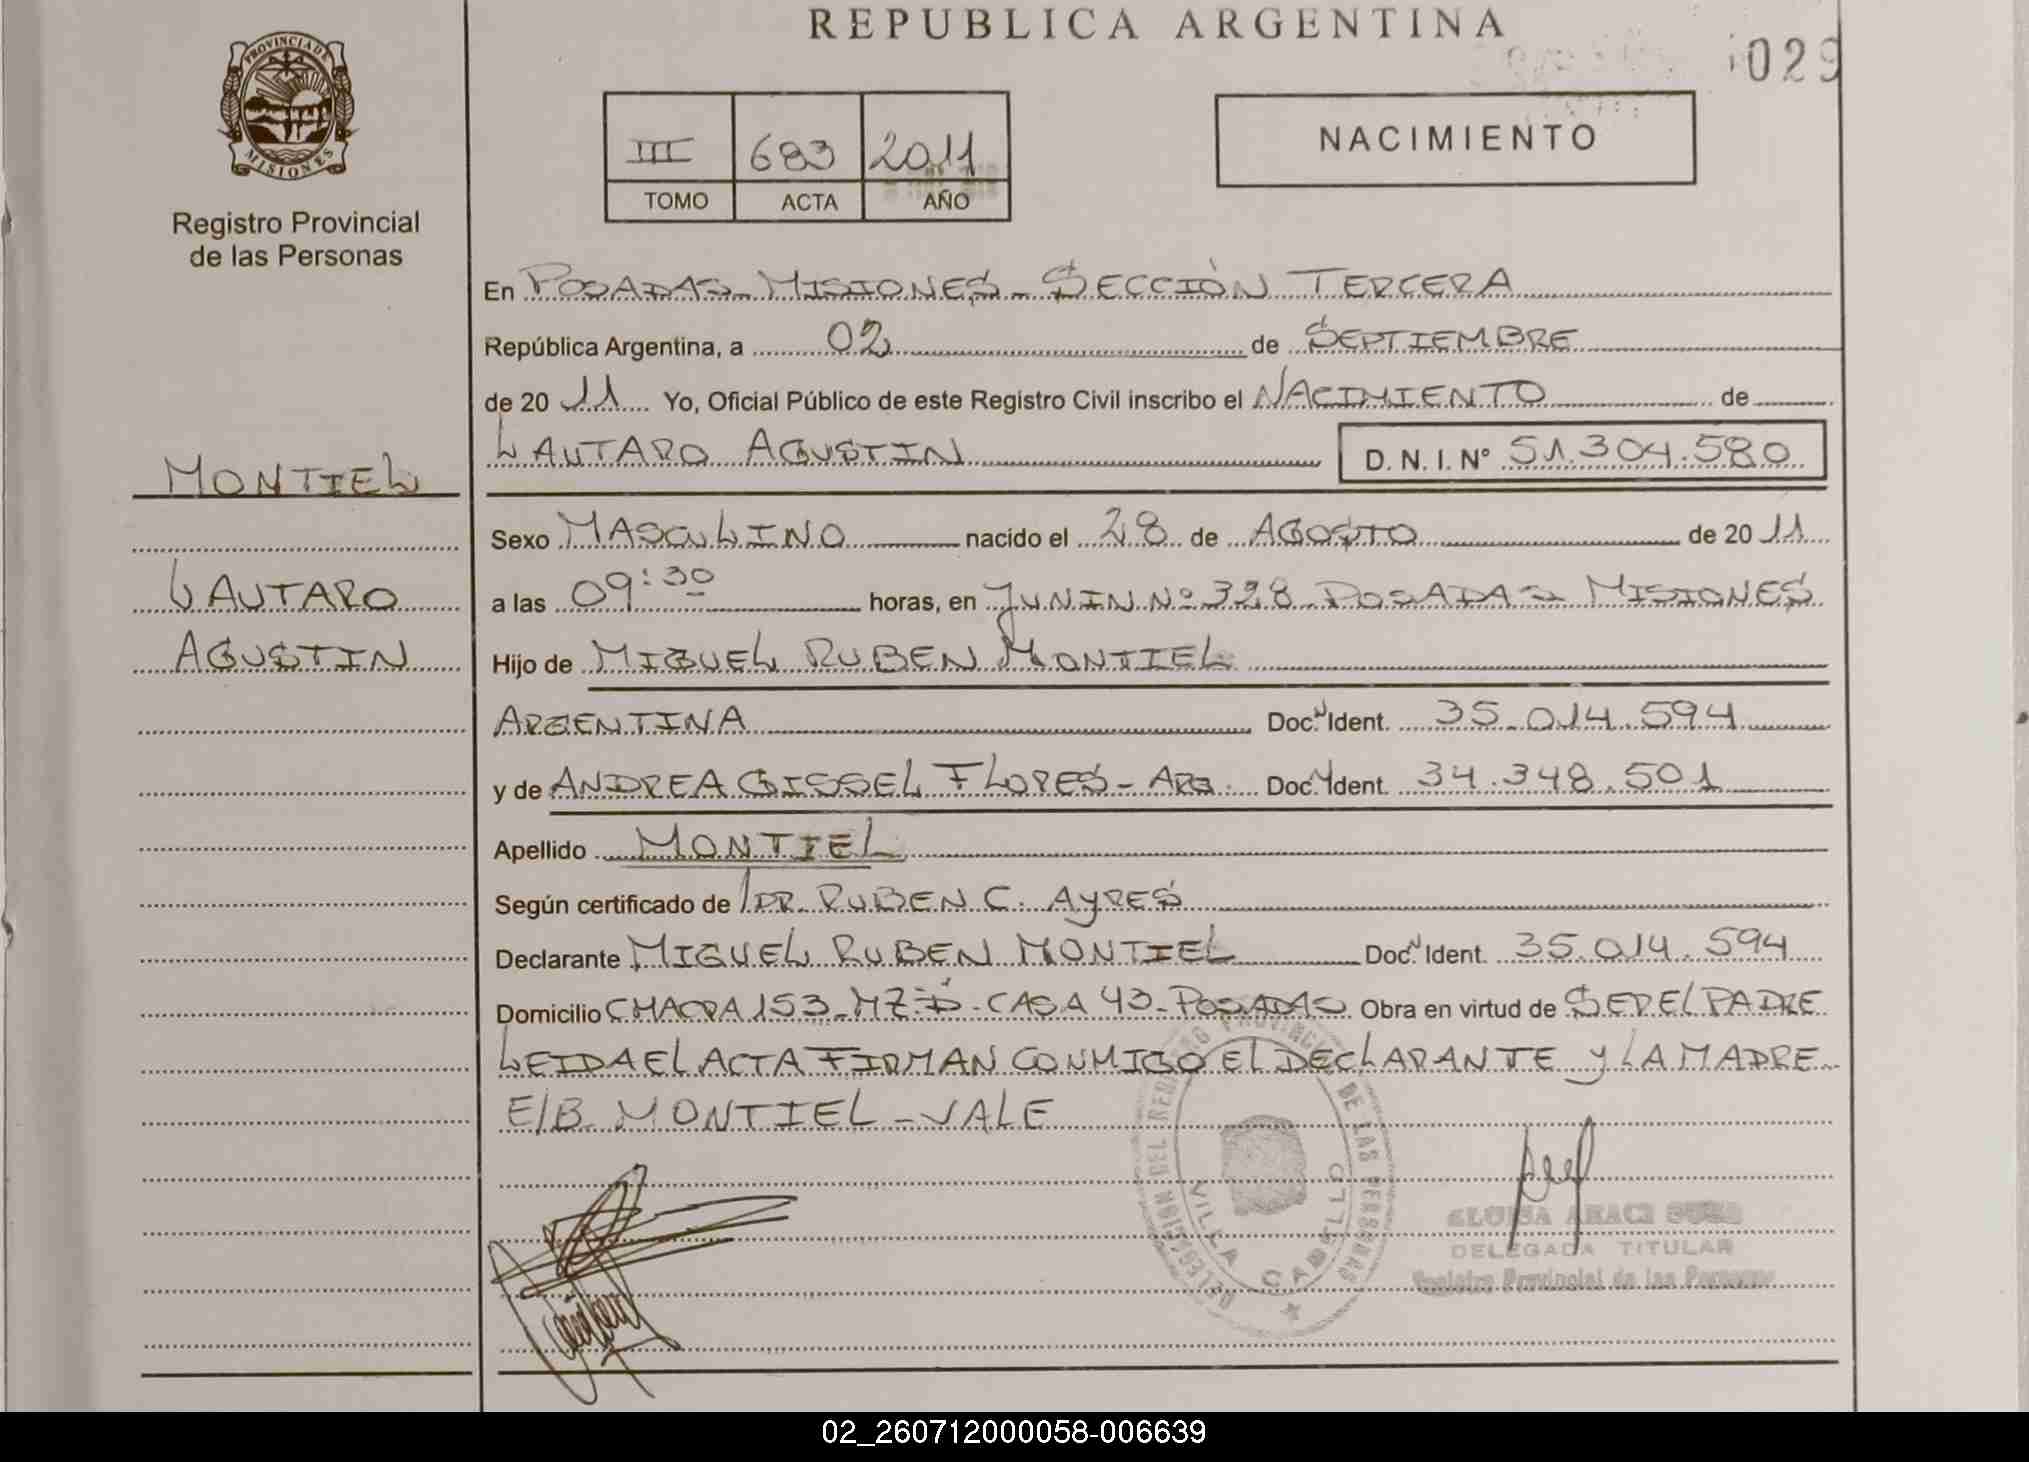 REPUBLICA ARGENTINA
029
PROVINCIA DE
MISIONES
Registro Provincial
de las Personas
III 683 2011
TOMO ACTA AÑO
NACIMIENTO
En POSADAS - MISIONES - SECCIÓN TERCERA
República Argentina, a 02 de SEPTIEMBRE
de 2011 Yo, Oficial Público de este Registro Civil inscribo el NACIMIENTO de
LAUTARO AGUSTIN D. N. I. Nº 51.304.580
MONTIEL
LAUTARO
AGUSTIN
Sexo MASCULINO nacido el 28 de AGOSTO de 2011
a las 09:30 horas, en JUNIN Nº 328 POSADAS MISIONES
Hijo de MIGUEL RUBEN MONTIEL
ARGENTINA Doc. Ident. 35.014.594
y de ANDREA GISSEL FLORES - ARG. Doc. Ident. 34.348.501
Apellido MONTIEL
Según certificado de DR. RUBEN C. AYRES
Declarante MIGUEL RUBEN MONTIEL Doc. Ident. 35.014.594
Domicilio CHACRA 153 - MZ: D - CASA 43 - POSADAS Obra en virtud de SER EL PADRE
LEIDA EL ACTA FIRMAN CONMIGO EL DECLARANTE Y LA MADRE
E/B MONTIEL - VALE
DELEGACION DEL REGISTRO PROVINCIAL DE LAS PERSONAS
VILLA CABELLO
ELOISA ARACI
DELEGADA TITULAR
Registro Provincial de las Personas
02_260712000058-006639